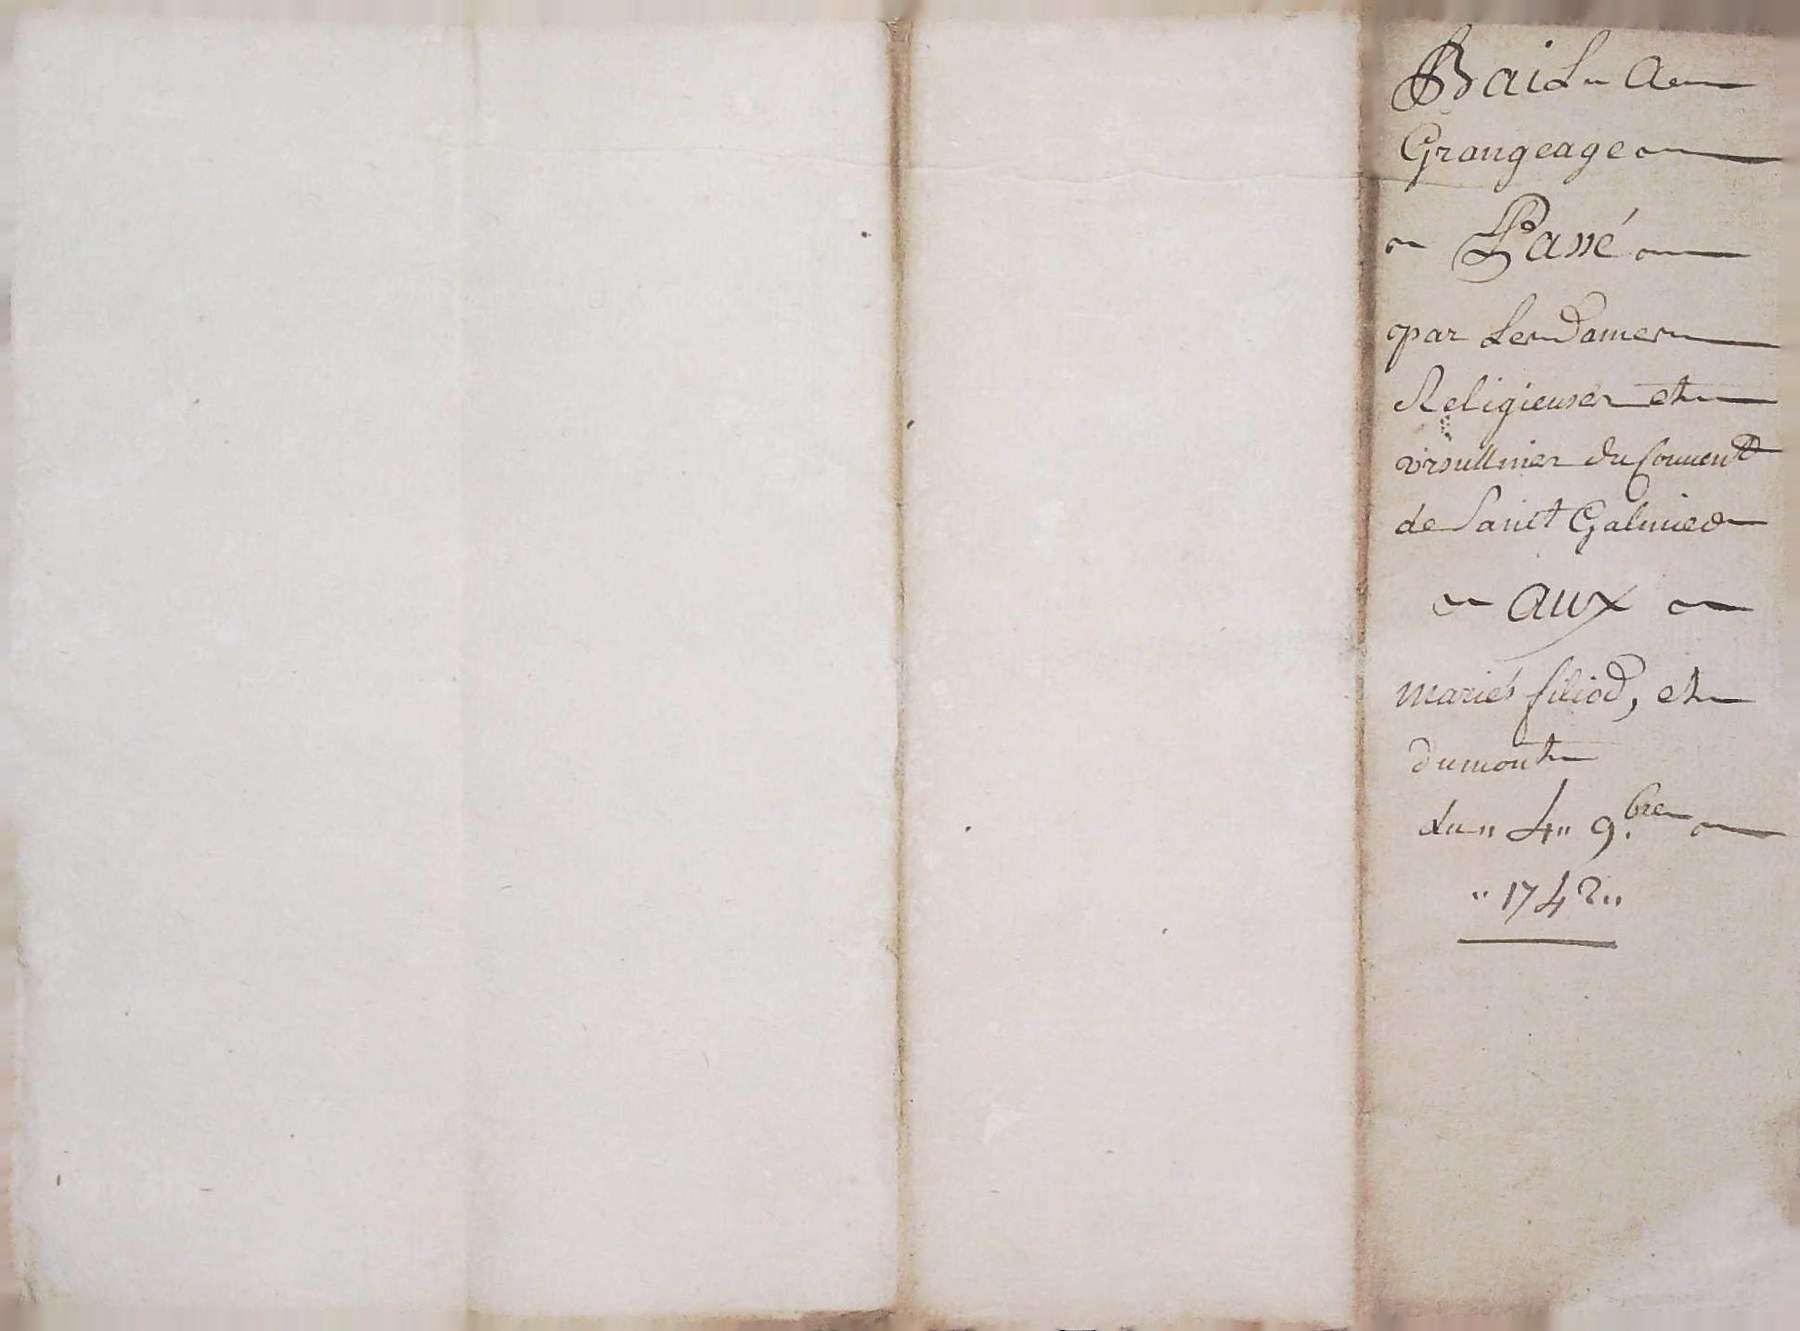 Bail A
Grangeage
Passé
par Les Dames
Religieuses et
vrsullines du Couuent
de Sainct Galmier
aux
mariés filiod, et
dumont
du 4 9.bre
1742